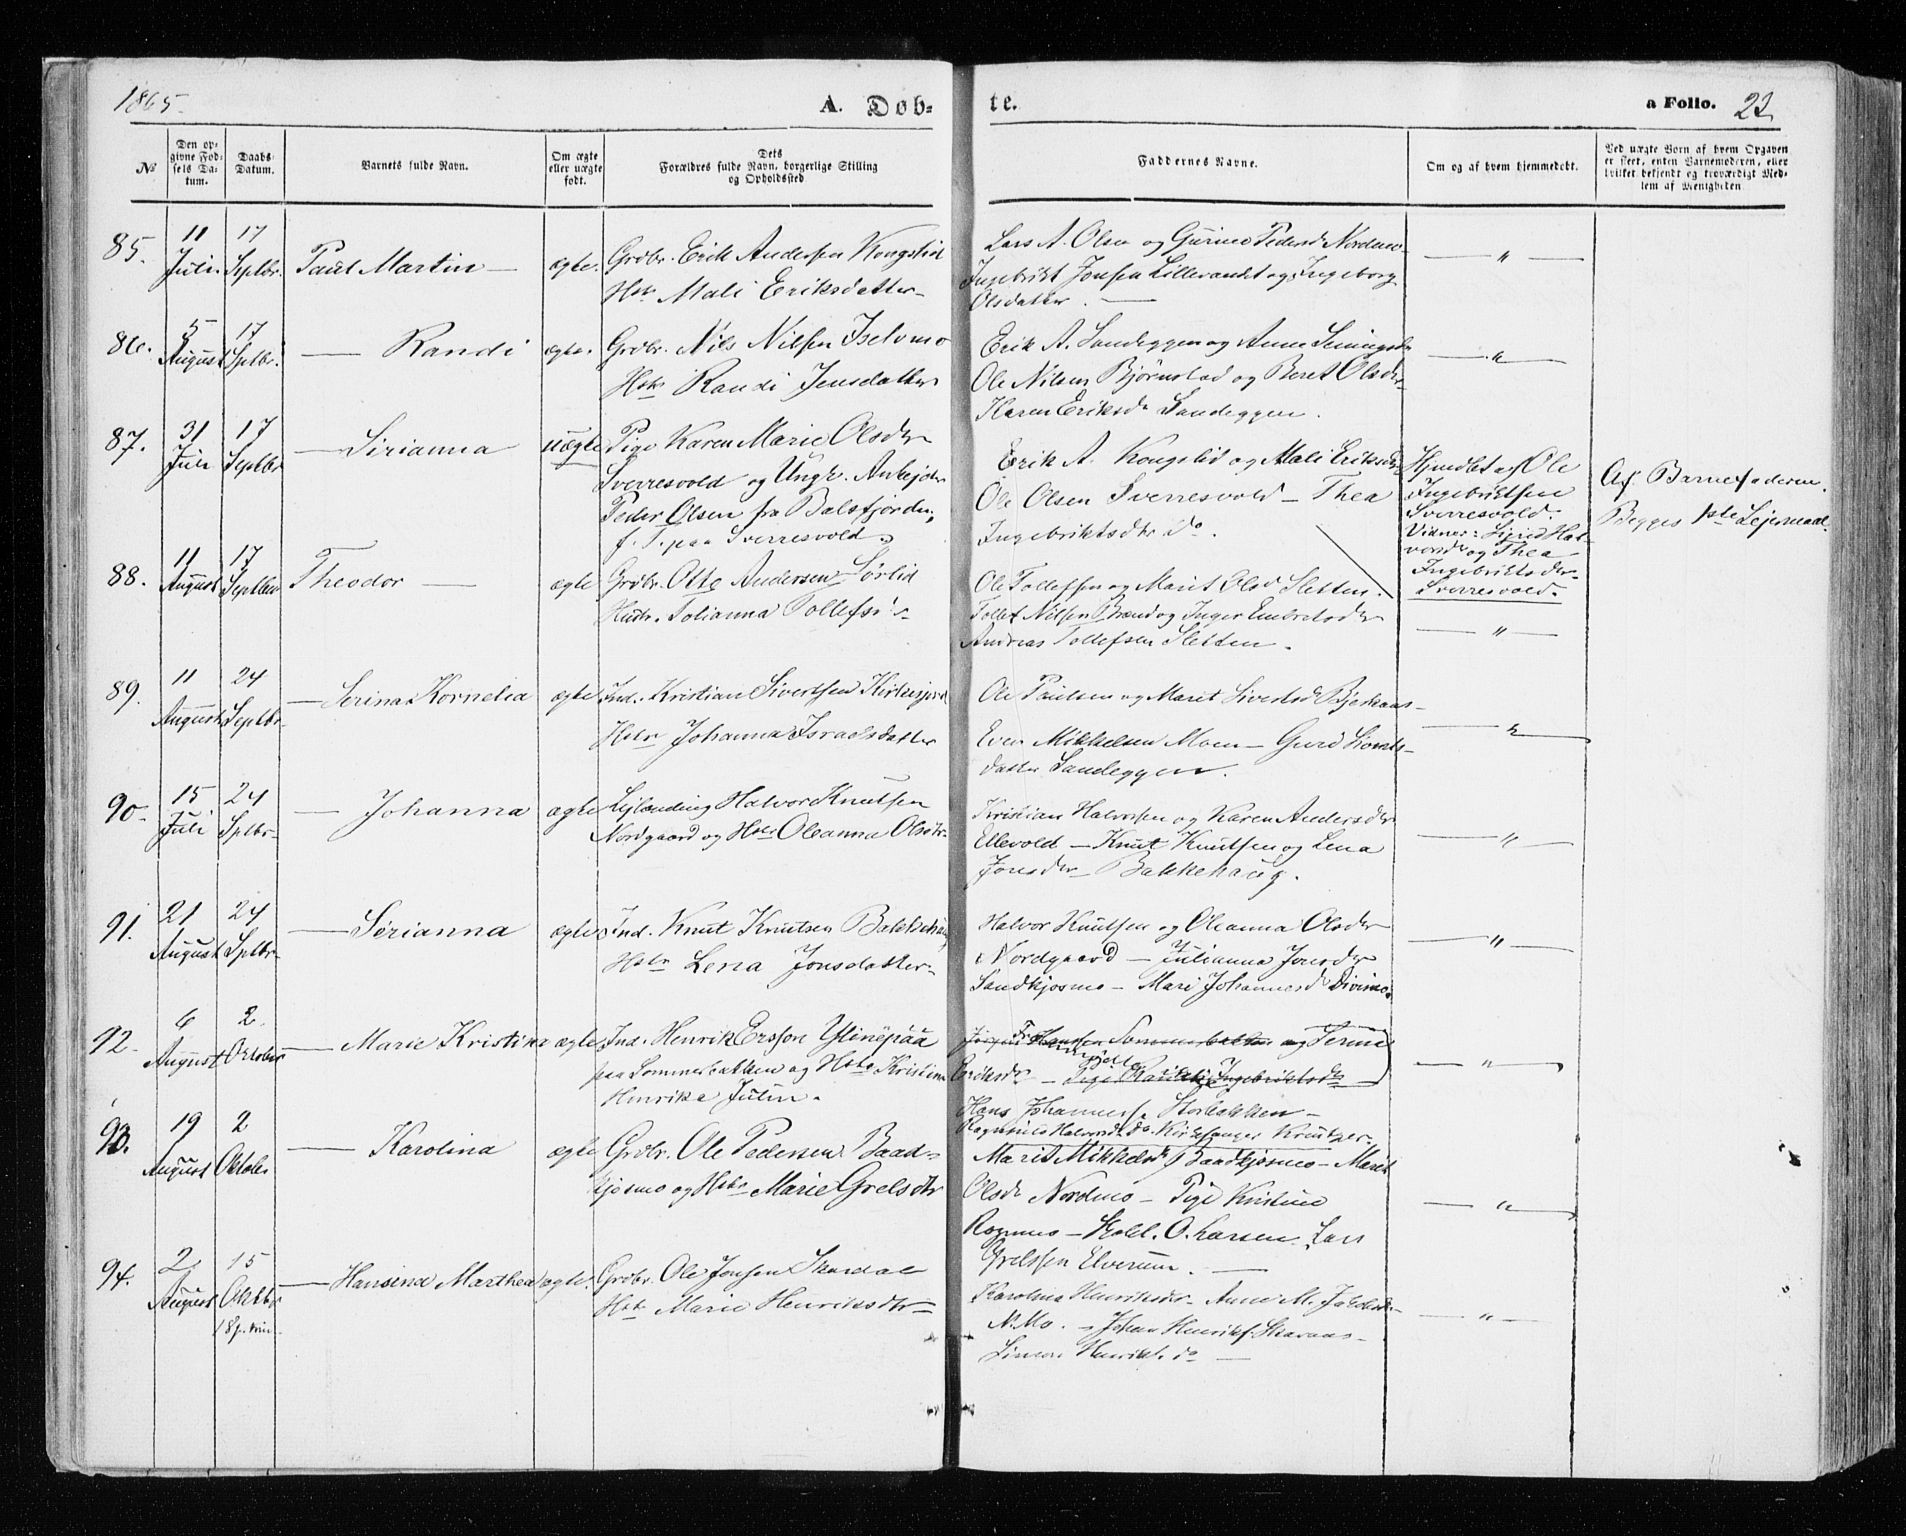 1865.
A. Døb-
te.
a Folio. 23
№
Den op-
givne Fød-
sels Da-
tum.
Daabs-
Datum.
Barnets fulde Navn.
Om ægte
eller uægte
født.
Dets
Forældres fulde Navn, borgerlige Stilling
og Opholdssted
Faddernes Navne.
Om og af hvem hjemmedøbt.
Ved uægte Børn af hvem Opgaven
er skeet, enten Barnemoderen, eller
hvilket bekjendt og troværdigt Med-
lem af Menigheden
85.
11
Juli
17
Septbr.
Paul Martin —
ægte.
Grdbr. Erik Andersen Kongslid
Hstr Mali Eriksdatter
Lars A. Olsen og Gurine Pedersd Nordmo
Ingebrikt Jonsen Lillevandet og Ingeborg
Olsdatter. —
— " —
86.
5
August
17
Sptbr.
— Randi
ægte.
Grdbr. Nils Nilsen Iselvmo
Hstr Randi Jensdatter
Erik A. Sandeggen og Anne
Ole Nilsen Bjørnstad og Beret Olsdr
Karen Eriksdr Sandeggen.
— " —
87.
31
Juli
17
Septbr
— Sirianna
uægte
Pige Karen Marie Olsdr
Sverresvold og Ungk. Arbejder
Peder Olsen fra Balsfjorden,
f. T. paa Sverresvold.
Erik A. Kongslid og Mali Eriksdr
Ole Olsen Sverresvold — Thea
Ingebriktsdtr do.
Hjmdbt af Ole
Ingebriktsen
Sverresvold.
Vidner: Sigrid Hal-
vorsdr og Thea
Ingebriktsdr
Sverresvold.
Af Barnefaderen.
Begges 1ste Lejermaal.
88.
11
August
17
Septber
Theodor —
ægte
Grdbr. Otto Andersen Sørlid
Hustr. Johanna Tollefsd.
Ole Tollefsen og Marit Olsd Sletten.
Tollef Nilsen Brænd og Inger Embretsdr
Andreas Tollefsen Sletten.
— " —
89.
11
August
24
Septbr
— Serina Kornelia
ægte
Ind. Kristian Sivertsen Kirkesjord
Hstr Johanna Israelsdatter
Ole Paulsen og Marit Sivertsd Bjerkaas
Even Mikkelsen Moen — Guri Siverts-
datter Sandeggen.
— " —
90.
15
Juli
24
Sptbr
— Johanna
ægte
Lejlænding Halvor Knutsen
Nordgaard og Hstr Oleanna Olsdtr.
Kristian Halvorsen og Karen Andersdr
Ellevold — Knut Knutsen og Lena
Jonsdr Bakkehaug.
— " —
91.
21
August
24
Sptbr
— Serianna
ægte
Ind. Knut Knutsen Bakkehaug
Hstr Lena Jonsdatter
Halvor Knutsen og Oleanna Olsdr
Nordgaard — Julianna Jonsdr
Sandkjosmo — Mari Johannesd Divimo
— " —
92.
6
August
2
October
— Marie Kristina
ægte
Ind. Henrik Ersson Ylinepää
paa Sommerbakken og Hstr Kristina
Henrika Julin.
Jørgen Hansen Sommerbakken og Serine
Eriksdr — Pige Ingebriktsdr
Hans Johannessen Storbakken —
Ragnhild Halvorsdr do. Kirkesanger Kreutzer.
— " —
93.
19
August
2
Oktober
— Karolina
ægte
Grdbr. Ole Pedersen Baad-
kjosmo og Hstr Marie Grelsdtr
Marit Mikkelsd Baadkjosmo — Marit
Olsdr Nordmo — Pige Kristine
Rognmo — Skoll. O. Larsen. Lars
Grelssen Elverum. —
— " —
94.
2
August
15
Oktbr
18 p. trin.
— Hansina Marthea
ægte.
Grdbr. Ole Jonsen Skardal
Hstr Marie Henriksdtr
Karolina Henriksdr — Anne M. Jakobsdr
N. Mo. — Johan Henriks. Skaraas —
Simon Henriks. do —
— " —